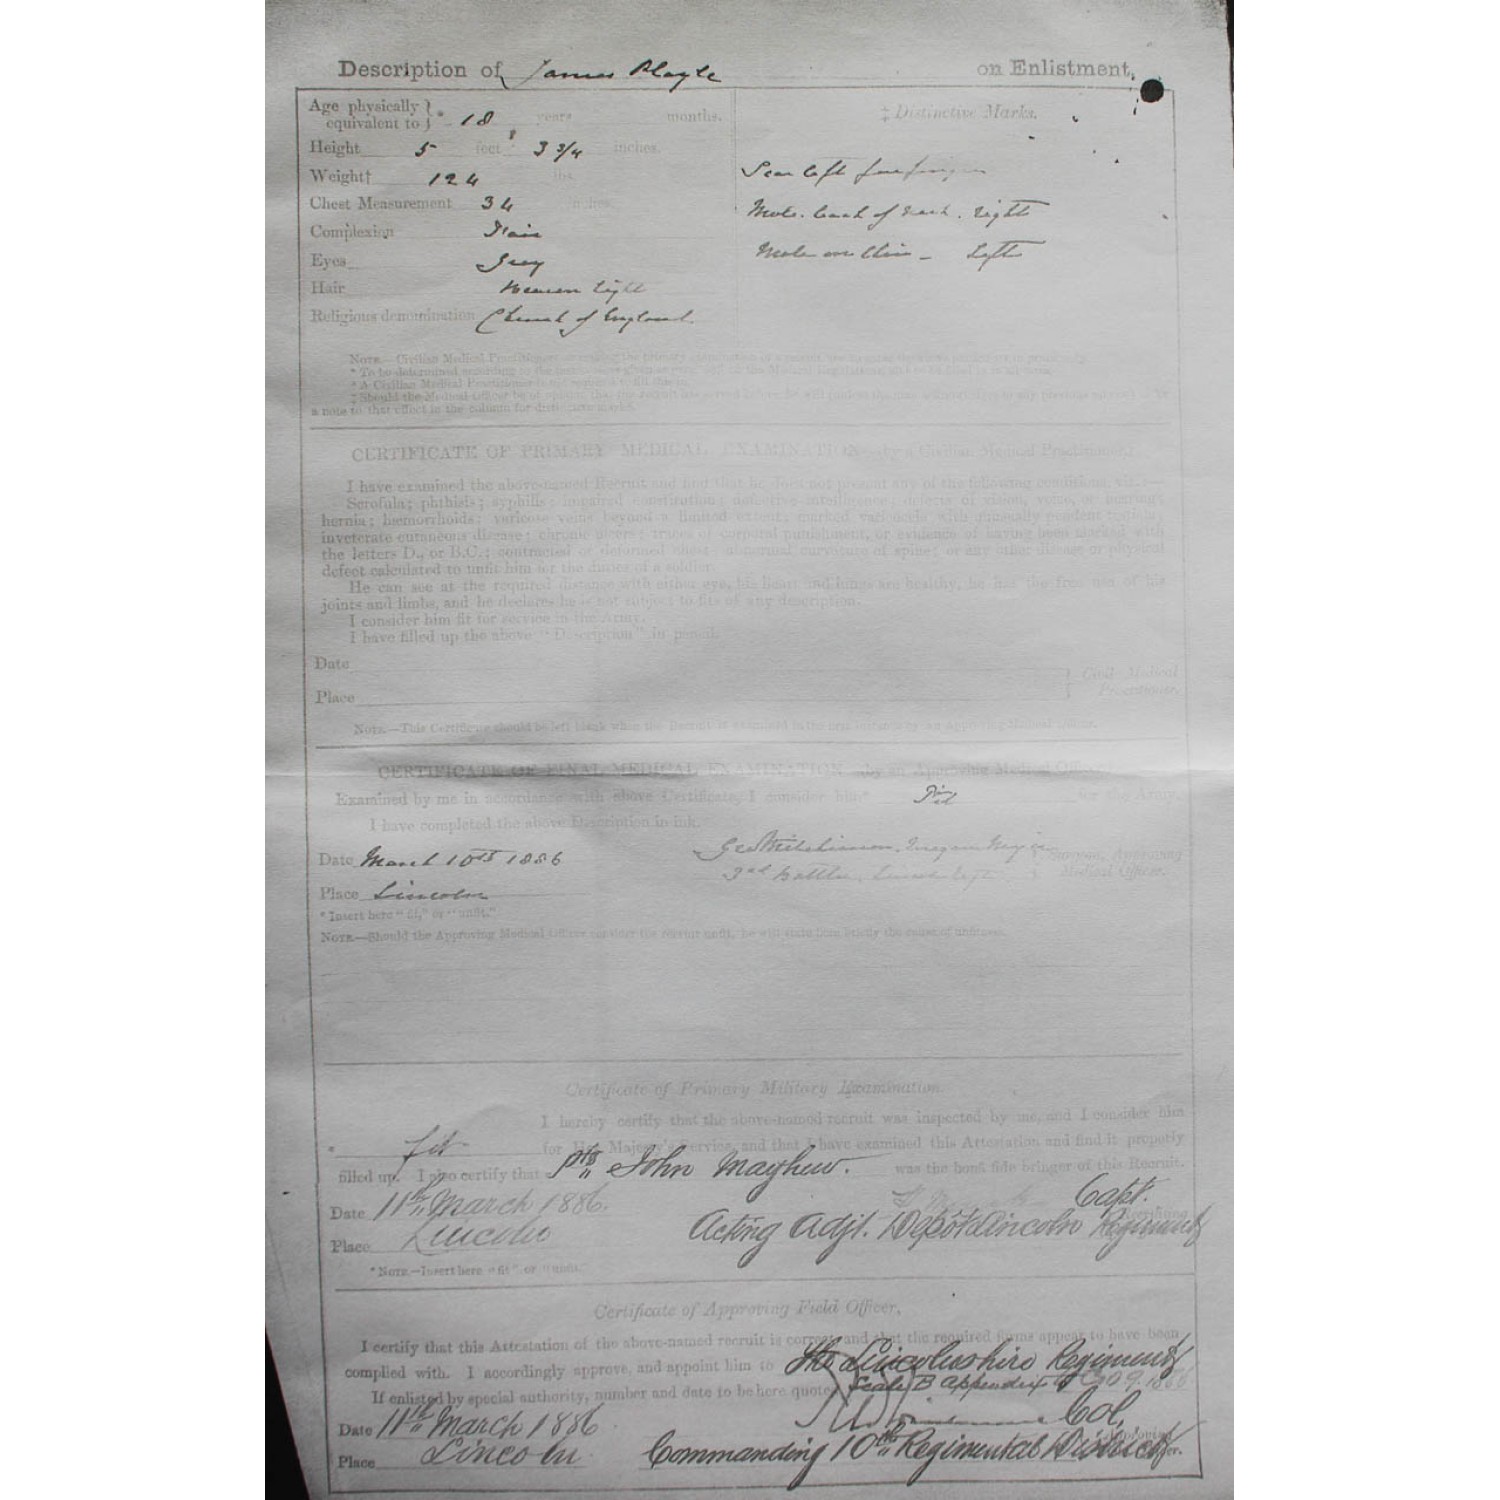 Description of James on Enlistment.
Age physically equivalent to * 18 years months.
‡ Distinctive Marks.
Height 5 feet 3 3/4 inches.
Weight† 124 lbs.
Scar left forefinger
Chest Measurement 34 inches.
Mole. back of neck. right
Complexion Fair
Mole on Chin - Left
Eyes Grey
Hair light
Religious denomination Church of England.
NOTE.—Civilian Medical Practitioners
* To be determined according to the
* A Civilian Medical Practitioner is not required to fill this in.
‡ Should the Medical Officer be of opinion that the recruit has served before, he will
a note to that effect in the column for distinctive marks.
CERTIFICATE OF PRIMARY MEDICAL EXAMINATION by a Civilian Medical Practitioner.
I have examined the above-named Recruit and find that he does not present any of the following conditions, viz.:—
Scrofula; phthisis; syphilis; impaired constitution; defective intelligence; defects of vision, voice, or hearing;
hernia; hæmorrhoids; varicose veins beyond a limited extent; marked varicocele with unusually pendent testicle;
inveterate cutaneous disease; chronic ulcers; traces of corporal punishment, or evidence of having been marked with
the letters D., or B.C.; contracted or deformed chest; abnormal curvature of spine; or any other disease or physical
defect calculated to unfit him for the duties of a soldier.
He can see at the required distance with either eye, his heart and lungs are healthy, he has the free use of his
joints and limbs, and he declares he is not subject to fits of any description.
I consider him fit for service in the Army.
I have filled up the above "Description" in pencil.
Date
Civil Medical
Place
Practitioner.
NOTE.—This Certificate should be left blank when the Recruit is examined in the by an Approving Medical Officer.
CERTIFICATE OF FINAL MEDICAL EXAMINATION by an Approving Medical Officer.
Examined by me in accordance with above Certificate, I consider him* Fit for the Army.
I have completed the above Description in ink.
Date March 10th 1886
Surgeon, Approving
3rd Battn.
Medical Officer.
Place Lincoln
* Insert here "fit," or "unfit."
NOTE.—Should the Approving Medical Officer consider the recruit unfit, he will state here briefly the cause of unfitness
Certificate of Primary Military Examination.
I hereby certify that the above-named recruit was inspected by me, and I consider him
* fit for Her Majesty's Service, and that I have examined this Attestation and find it properly
filled up. I also certify that Pte John Mayhew. was the bonâ fide bringer of this Recruit.
Date 11th March 1886.
Capt.
Place Lincoln
Acting Adjt. Depôt Lincoln Regiment
* NOTE.—Insert here "fit" or "unfit.
Certificate of Approving Field Officer.
I certify that this Attestation of the above-named recruit is correct, and that the required forms appear to have been
complied with. I accordingly approve, and appoint him to the Lincolnshire Regiment
If enlisted by special authority, number and date to be here quoted Scale B Appendix
Date 11th March 1886
Col.
Place Lincoln
Commanding 10th Regimental District